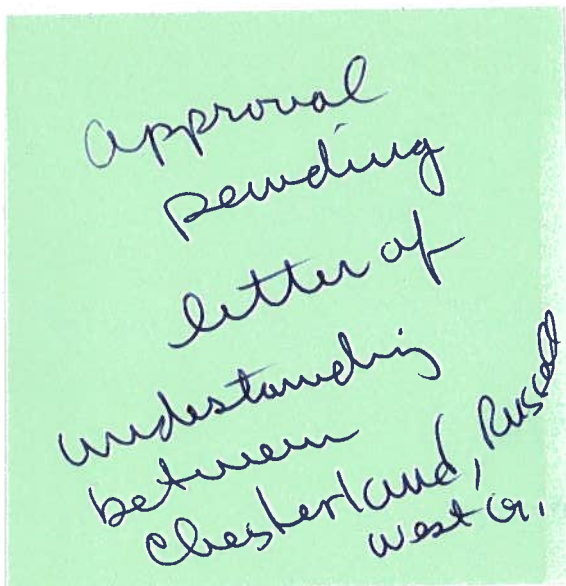 approval
pending
letter of
undestanding
between
Chesterland, Russell
West G.